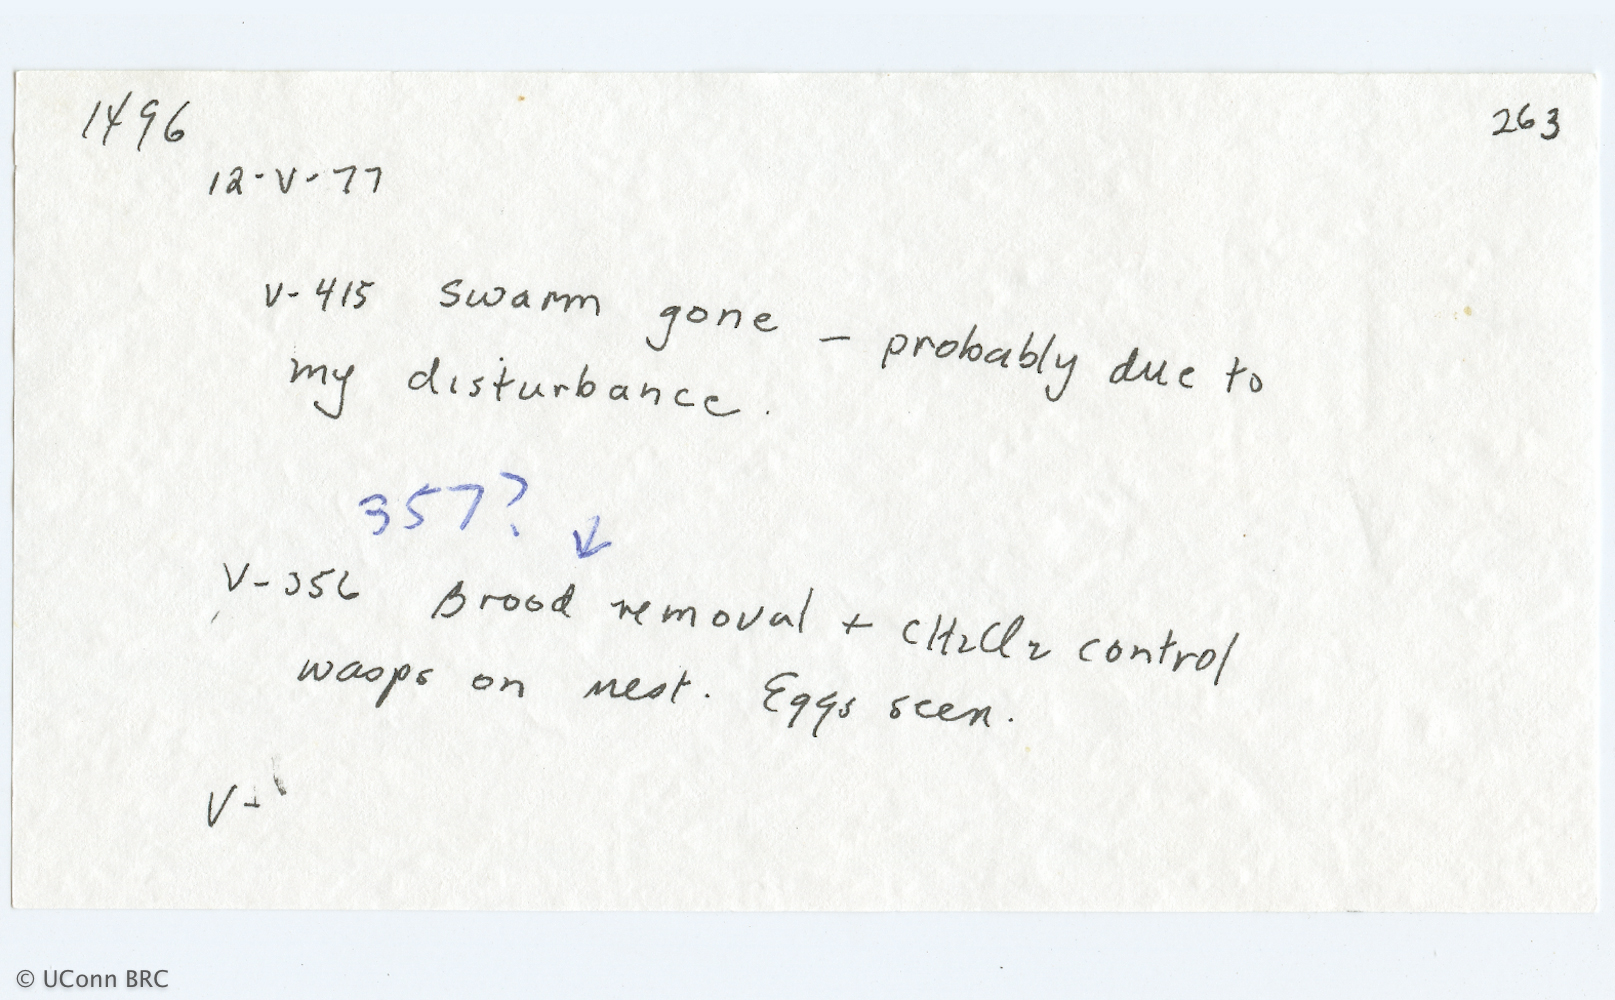 1496
263
12-V-77
V-415 Swarm gone – probably due to
my disturbance.
357? ↓
V-356 Brood removal + CH2Cl2 control
wasps on nest. Eggs seen.
V-
© UConn BRC